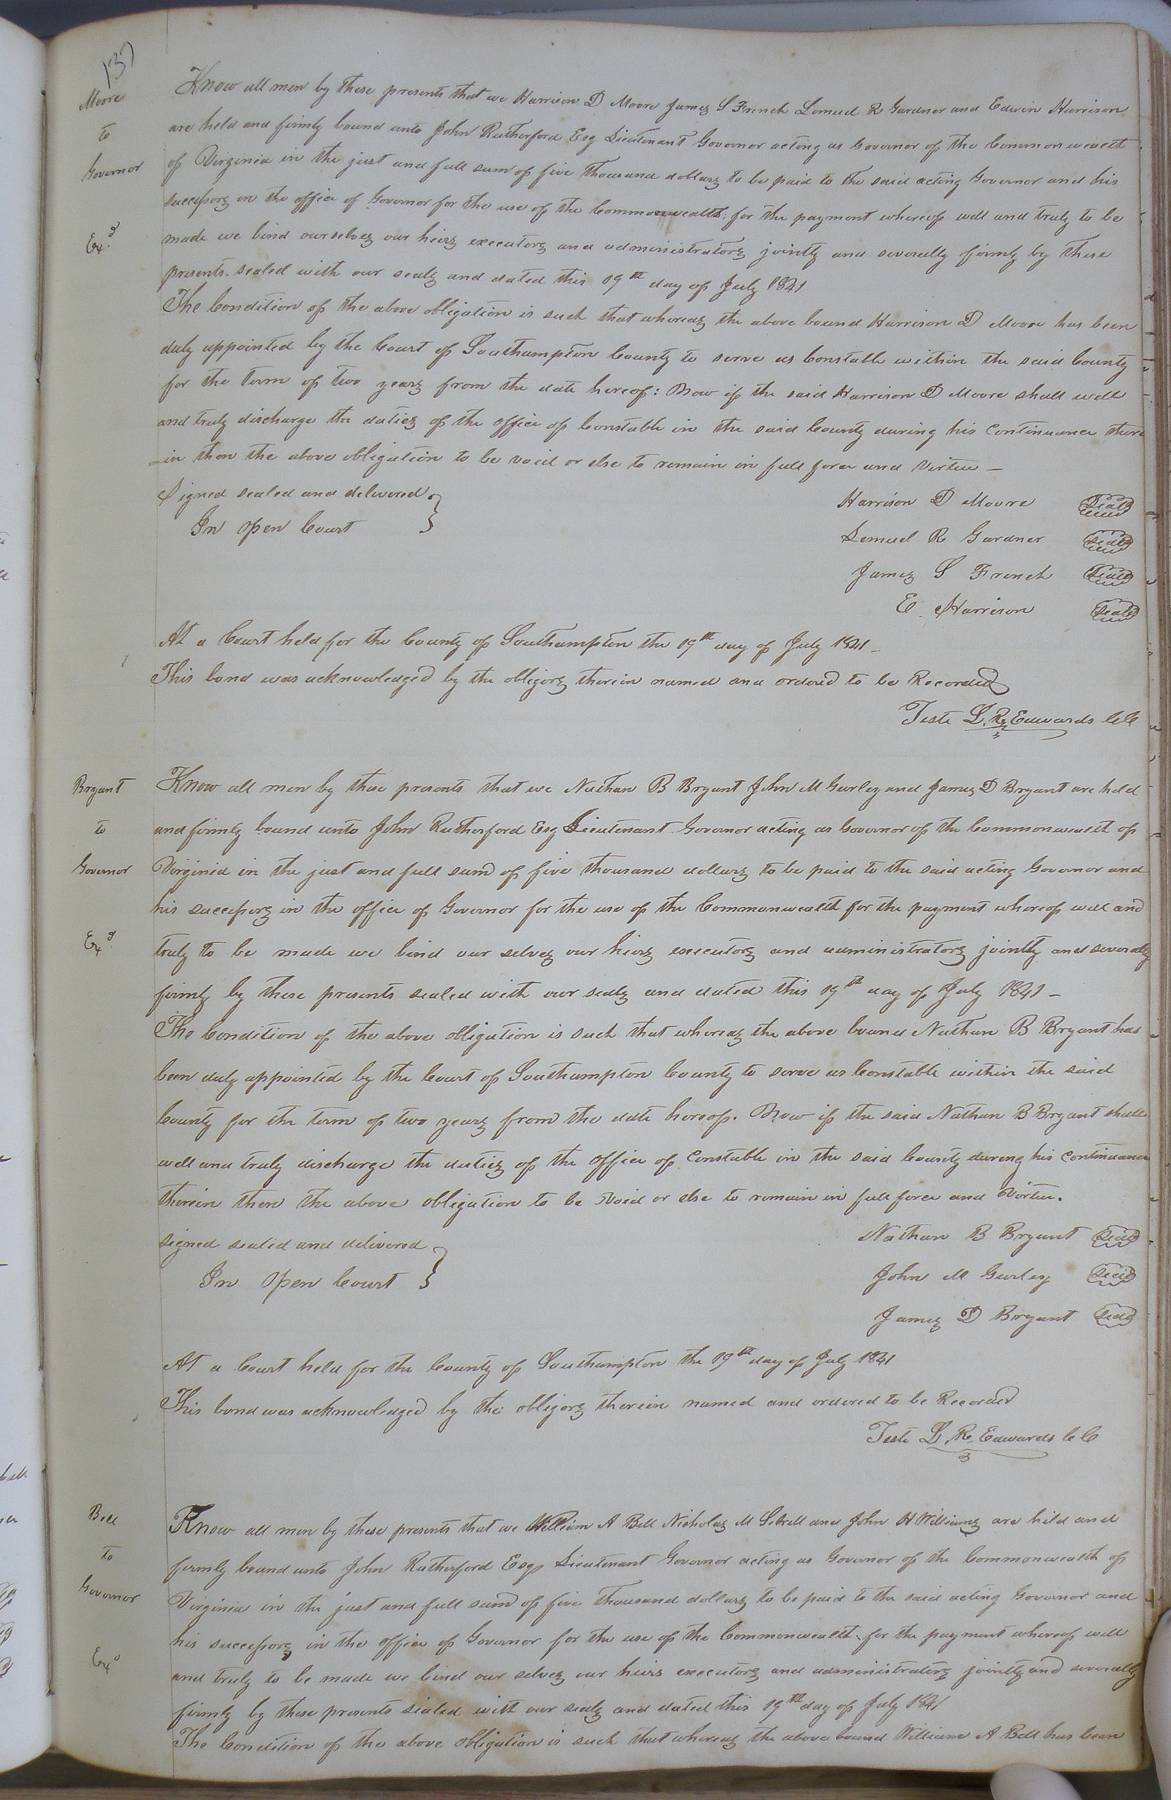 137
Moore
to
Governor
Exd
Know all men by these presents that we Harrison D Moore James S French Lemuel R Gardner and Edwin Harrison
are held and firmly bound unto John Rutherford Esq Lieutenant Governor acting as Governor of the Commonwealth
of Virginia in the just and full sum of five thousand dollars to be paid to the said acting Governor and his
successors in the office of Governor for the use of the Commonwealth, for the payment whereof well and truly to be
made we bind ourselves our heirs executors and administrators jointly and severally firmly by these
presents. sealed with our seals and dated this 19th day of July 1841
The Condition of the above obligation is such that whereas the above bound Harrison D Moore has been
duly appointed by the Court of Southampton County to serve as Constable within the said County
for the term of two years from the date hereof: Now if the said Harrison D Moore shall well
and truly discharge the duties of the office of Constable in the said County during his Continuance there
-in then the above obligation to be void or else to remain in full force and Virtue —
Signed sealed and delivered }
In open Court
Harrison D Moore Seal
Lemuel R Gardner Seal
James S French Seal
E. Harrison Seal
At a Court held for the County of Southampton the 19th day of July 1841 –
This bond was acknowledged by the obligors therein named and ordered to be Recorded
Teste L. R. Edwards CC
Bryant
to
Governor
Exd
Know all men by these presents that we Nathan B Bryant John M Gurley and James D Bryant are held
and firmly bound unto John Rutherford Esq Lieutenant Governor acting as Governor of the Commonwealth of
Virginia in the just and full sum of five thousand dollars to be paid to the said acting Governor and
his successors in the office of Governor for the use of the Commonwealth for the payment whereof well and
truly to be made we bind our selves our heirs executors and administrators jointly and severally
firmly by these presents sealed with our seals and dated this 19th day of July 1841 –
The Condition of the above obligation is such that whereas the above bound Nathan B Bryant has
been duly appointed by the Court of Southampton County to serve as Constable within the said
County for the term of two years from the date hereof. Now if the said Nathan B Bryant shall
well and truly discharge the duties of the office of Constable in the said County during his Continuance
therein then the above obligation to be Void or else to remain in full force and Virtue.
signed sealed and delivered }
In open Court
Nathan B Bryant Seal
John M Gurley Seal
James D Bryant Seal
At a Court held for the County of Southampton the 19th day of July 1841
This bond was acknowledged by the obligors therein named and ordered to be Recorded
Teste L. R. Edwards CC
Bell
to
Governor
Exd
Know all men by these presents that we William A Bell Nicholas M Sebrell and John H Williams are held and
firmly bound unto John Rutherford Esqr Lieutenant Governor acting as Governor of the Commonwealth of
Virginia in the just and full sum of five thousand dollars to be paid to the said acting Governor and
his successors in the office of Governor for the use of the Commonwealth, for the payment whereof well
and truly to be made we bind our selves our heirs executors and administrators jointly and severally
firmly by these presents sealed with our seals and dated this 19th day of July 1841
The Condition of the above obligation is such that whereas the above bound William A Bell has been